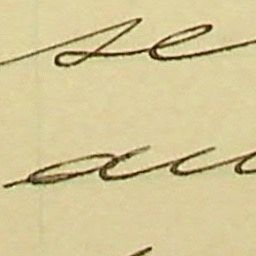 se
au